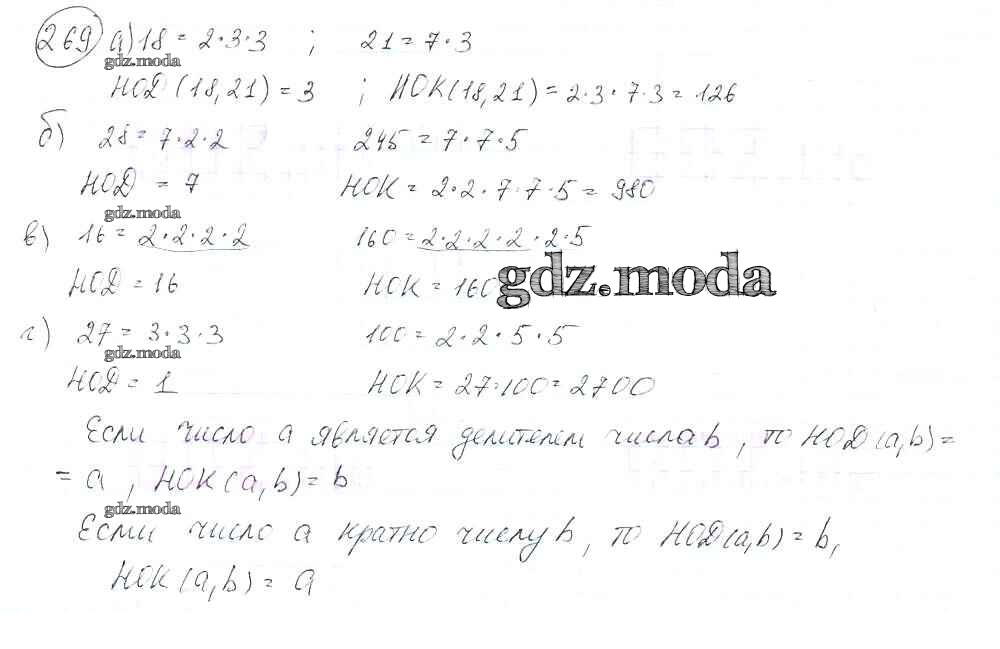 269 а) 18 = 2·3·3 ; 21 = 7·3
gdz.moda
НОД (18,21) = 3 ; НОК(18,21) = 2·3·7·3 = 126
б) 28 = 7·2·2 245 = 7·7·5
НОД = 7 НОК = 2·2·7·7·5 = 980
gdz.moda
в) 16 = 2·2·2·2 160 = 2·2·2·2·2·5
НОД = 16 НОК = 160
gdz.moda
г) 27 = 3·3·3 100 = 2·2·5·5
gdz.moda
НОД = 1 НОК = 27·100 = 2700
Если число a является делителем числа b, то НОД(a,b) =
= a, НОК(a,b) = b
gdz.moda
Если число a кратно числу b, то НОД(a,b) = b,
НОК(a,b) = a